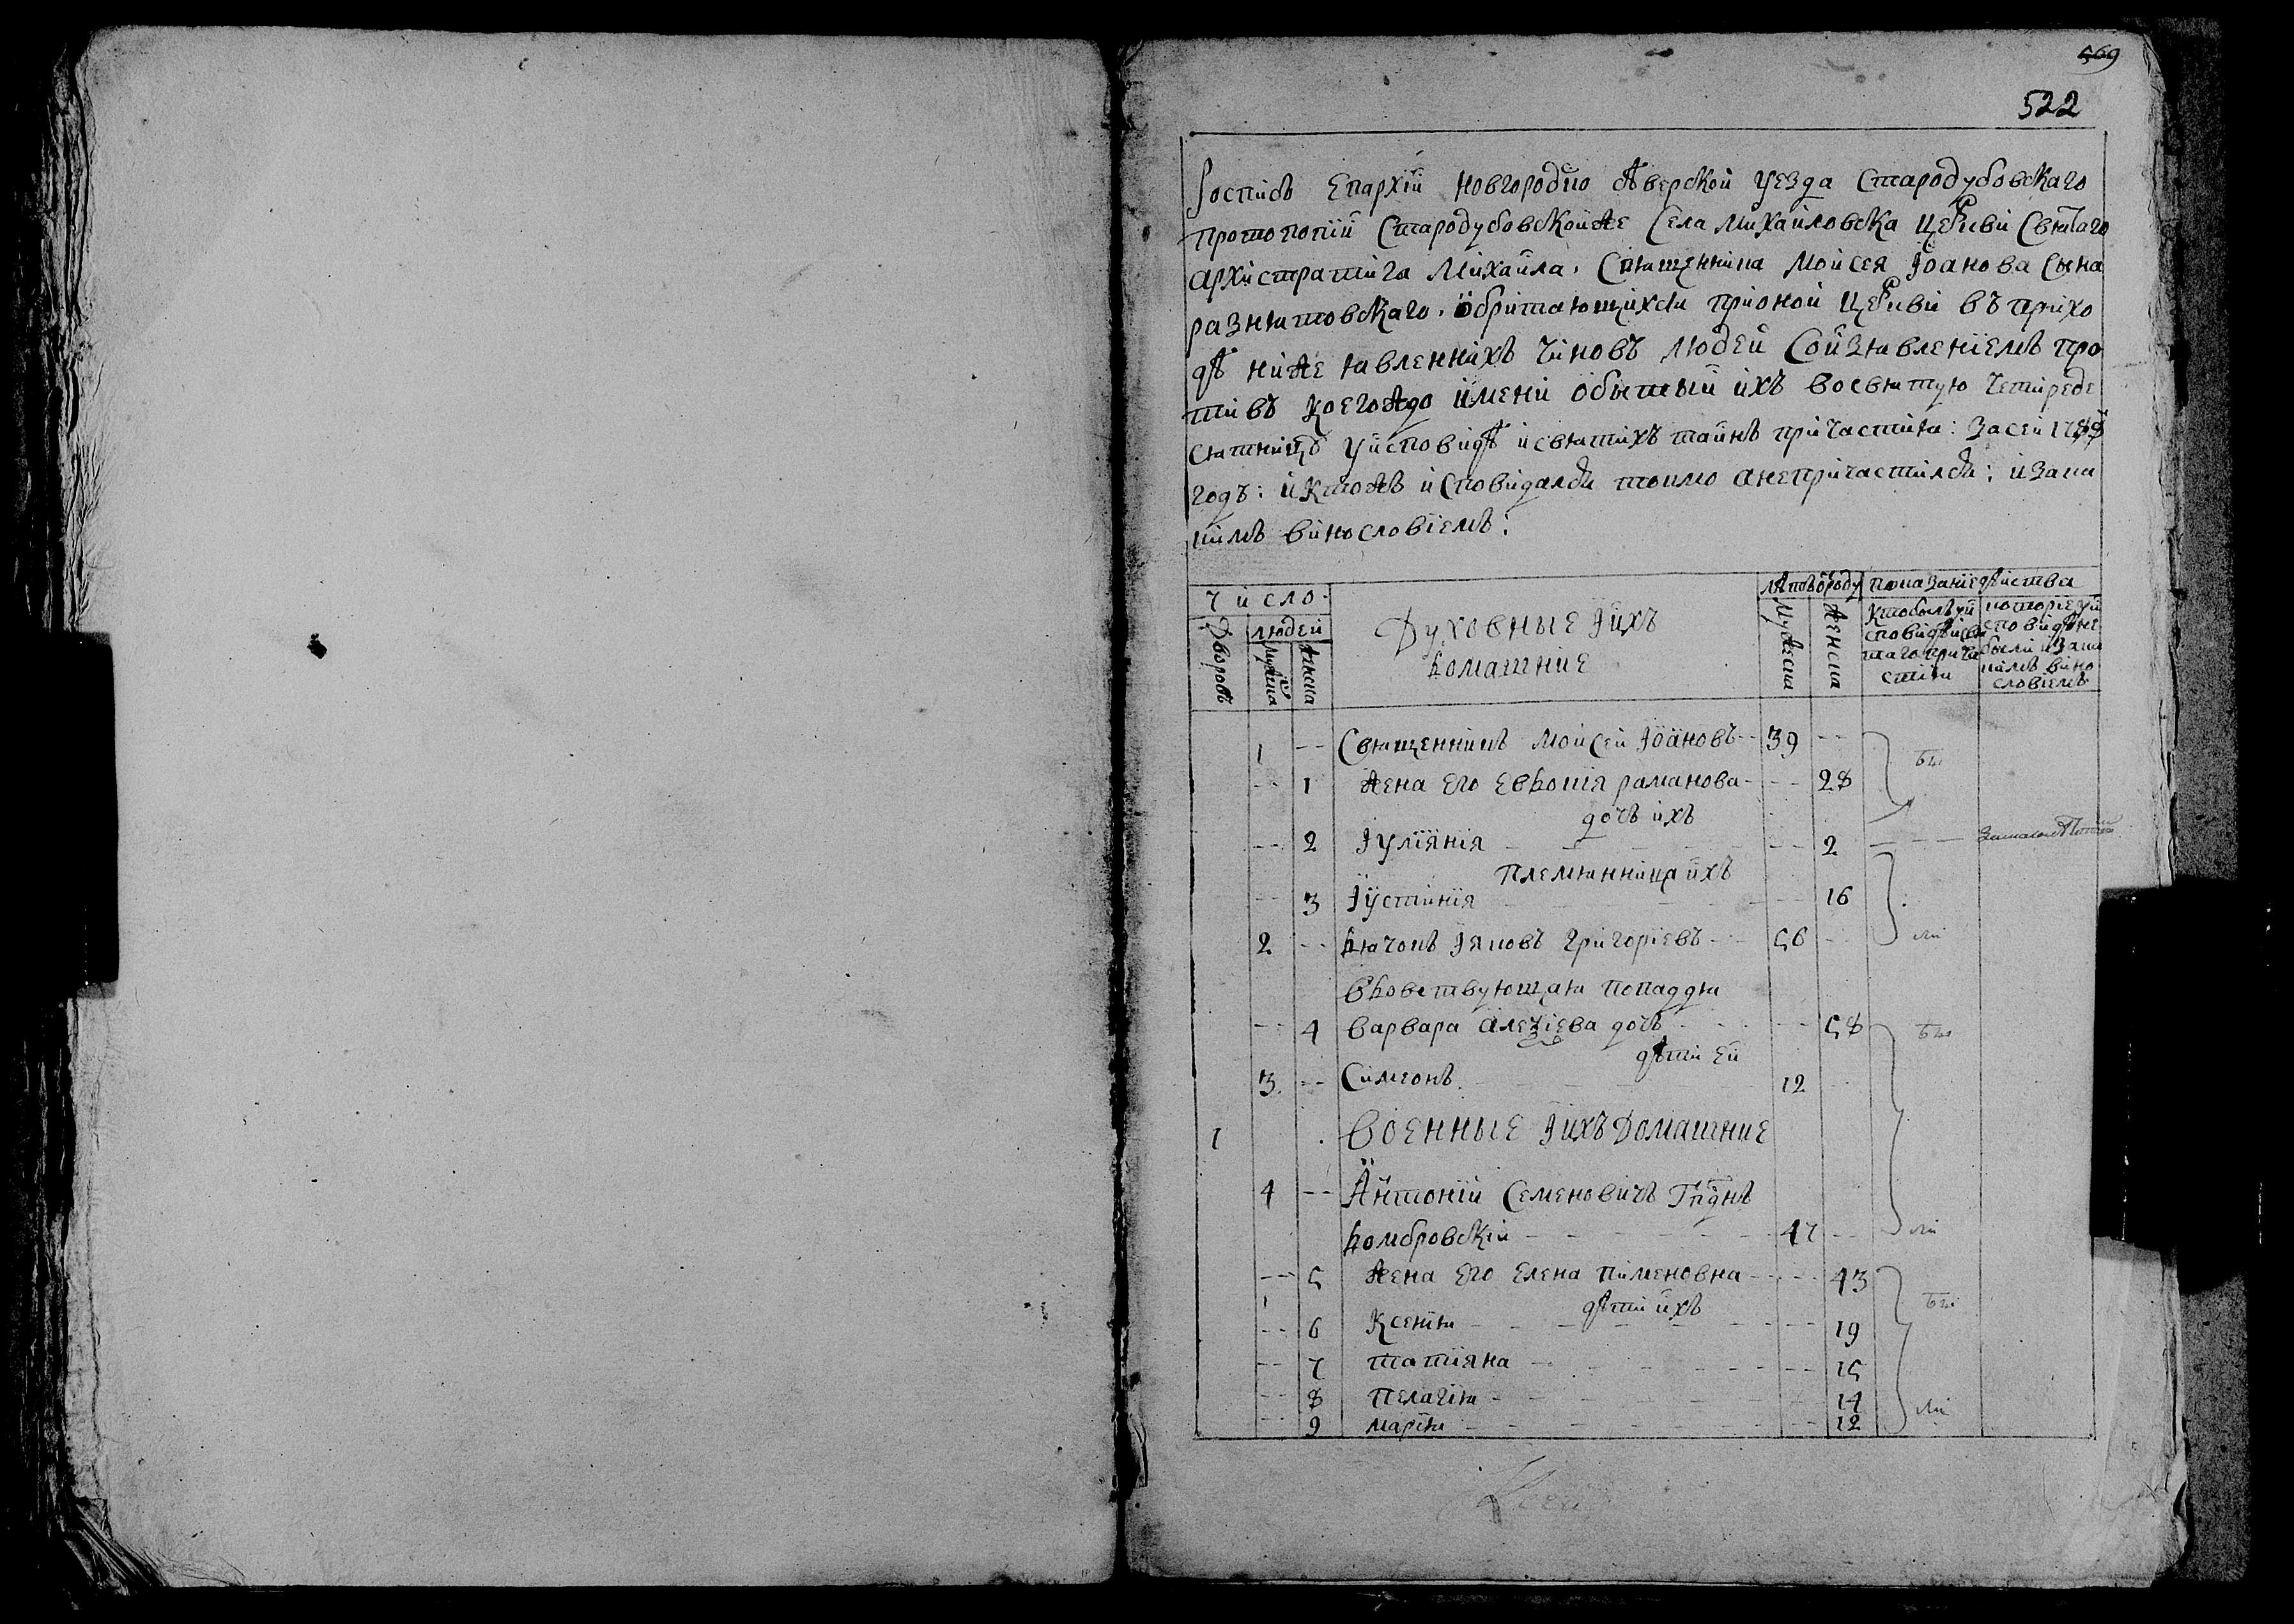 569
522
Роспись Епархїи Новгородко Сѣверской уезда Стародубовскаго
протопопїи Стародубовскойже Села Михайловска церкви Святаго
Архистратига Михаила, Священника Моисея Іоанова Сына
разнятовскаго, обритающихся прионой церкви въ прихо
дѣ ниже явленнихъ чиновъ людей Соизявленіемъ про
тивъ коегождо имени обытыи ихъ восвятую Четиреде
сятницѣ уисповидѣ исвятихъ таинъ причастия: Засей 1788
годъ: иктожъ исповидался токмо анепричастился: изаки
имъ винословіемъ:
Число
Дворовъ
людей
мужеска
женска
Духовные Іихъ
домашніе
лѣтъ ѿроду
Мужеска
Женска
показаніе дѣйства
Ктобылъ уи
сповидѣ исвя
таго прича
стія
которіе уи
сповидѣ не
были изаки
имъ вино
словіемъ
1 -- Священникъ Моисей Іоановъ -- 39 -- бы
-- 1 жена Его Евдокія романова -- -- 28
дочъ ихъ
-- 2 Іуліянія -- 2 -- -- замалолѣтст
племянница ихъ
-- 3 Іустинія -- 16
2 -- дячокъ Іяковъ Григоріевъ -- 56 -- ли
вдовствующая попаддя
-- 4 варвара алезіева дочъ -- 58 бы
дѣти Ей
3 -- Симеонъ -- 12
1 Военные Іихъ Домашніе
4 -- Антоній Семеновичъ Гпднъ
домбровскій -- 47 -- ли
-- 5 жена Его Елена пименовна -- -- 43
дѣти ихъ бы
-- 6 Ксенія -- -- 19
-- 7 татіяна -- -- 15
-- 8 пелагія -- 14 ли
-- 9 марія -- -- 12